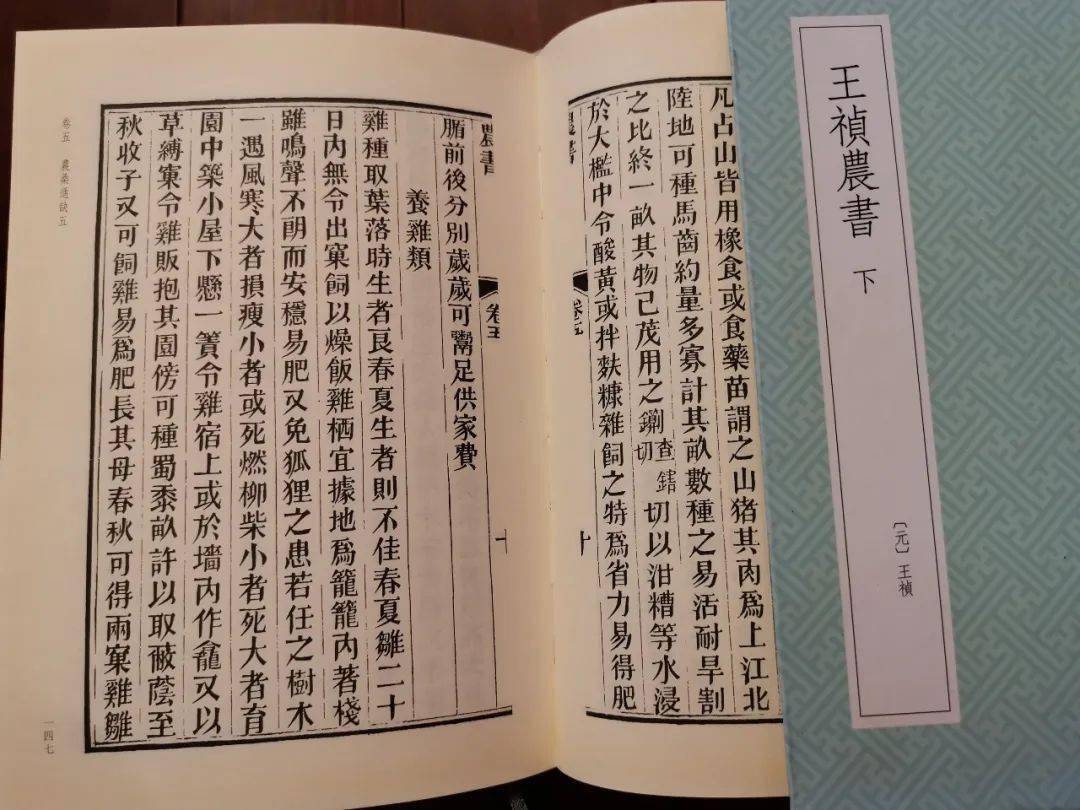 王禎農書 下
〔元〕王禎
凡占山皆用橡食或食藥苗謂之山猪其肉爲上江北
陸地可種馬齒約量多寡計其畝數種之易活耐旱割
之比終一畝其物已茂用之鍘切 查鎋切 切以泔糟等水浸
於大檻中令酸黃或拌麩糠雜飼之特爲省力易得肥
農書 卷五 十
農書 卷五 十一
腯前後分別歲歲可鬻足供家費
養雞類
雞種取葉落時生者良春夏生者則不佳春夏雛二十
日內無令出窠飼以燥飯雞栖宜據地爲籠籠內著棧
雖鳴聲不朗而安穩易肥又免狐狸之患若任之樹木
一遇風寒大者損瘦小者或死燃柳柴小者死大者盲
園中築小屋下懸一簀令雞宿上或於墻內作龕又以
草縛窠令雞販抱其園傍可種蜀黍畝許以取蔽蔭至
秋收子又可飼雞易爲肥長其母春秋可得兩窠雞雛
卷五 農桑通訣五
一四七